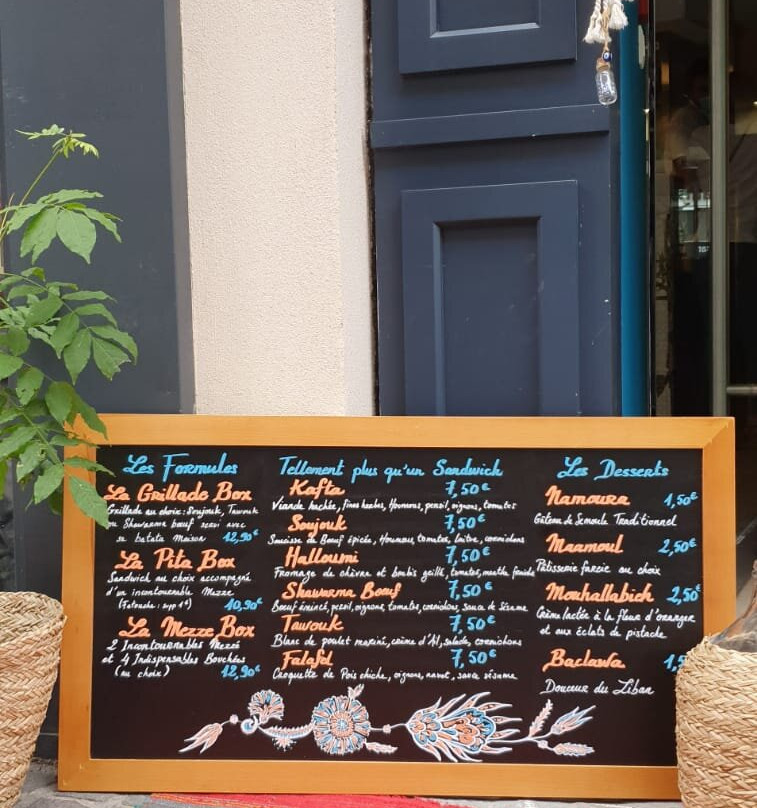 Les Formules
La Grillade Box
Grillade au choix: Soujouk, Tawouk
ou Shawarma bœuf servi avec
sa batata Maison 12,90€
La Pita Box
Sandwich au choix accompagné
d'un incontournable Mezze
(Fatouche: supp 1€) 10,90€
La Mezze Box
2 Incontournables Mezzé
et 4 Indispensables Bouchées
(au choix) 12,90€
Tellement plus qu'un Sandwich
Kafta 7,50€
Viande hachée, fines herbes, Houmous, persil, oignons, tomates
Soujouk 7,50€
Saucisse de Bœuf épicée, Houmous, tomates, laitue, cornichons
Halloumi 7,50€
Fromage de chèvre et brebis grillé, tomates, menthe fraîche
Shawarma Bœuf 7,50€
Bœuf émincé, persil, oignons, tomates, cornichons, sauce de Sésame
Tawouk 7,50€
Blanc de poulet mariné, crème d'Ail, salade, cornichons
Falafel 7,50€
Croquette de Pois chiche, oignons, navet, sauce sésame
Les Desserts
Namoura 1,50€
Gâteau de Semoule Traditionnel
Maamoul 2,50€
Pâtisserie farcie au choix
Mouhallabieh 2,50€
Crème lactée à la fleur d'oranger
et aux éclats de pistache
Baclawa 1,5
Douceur du Liban